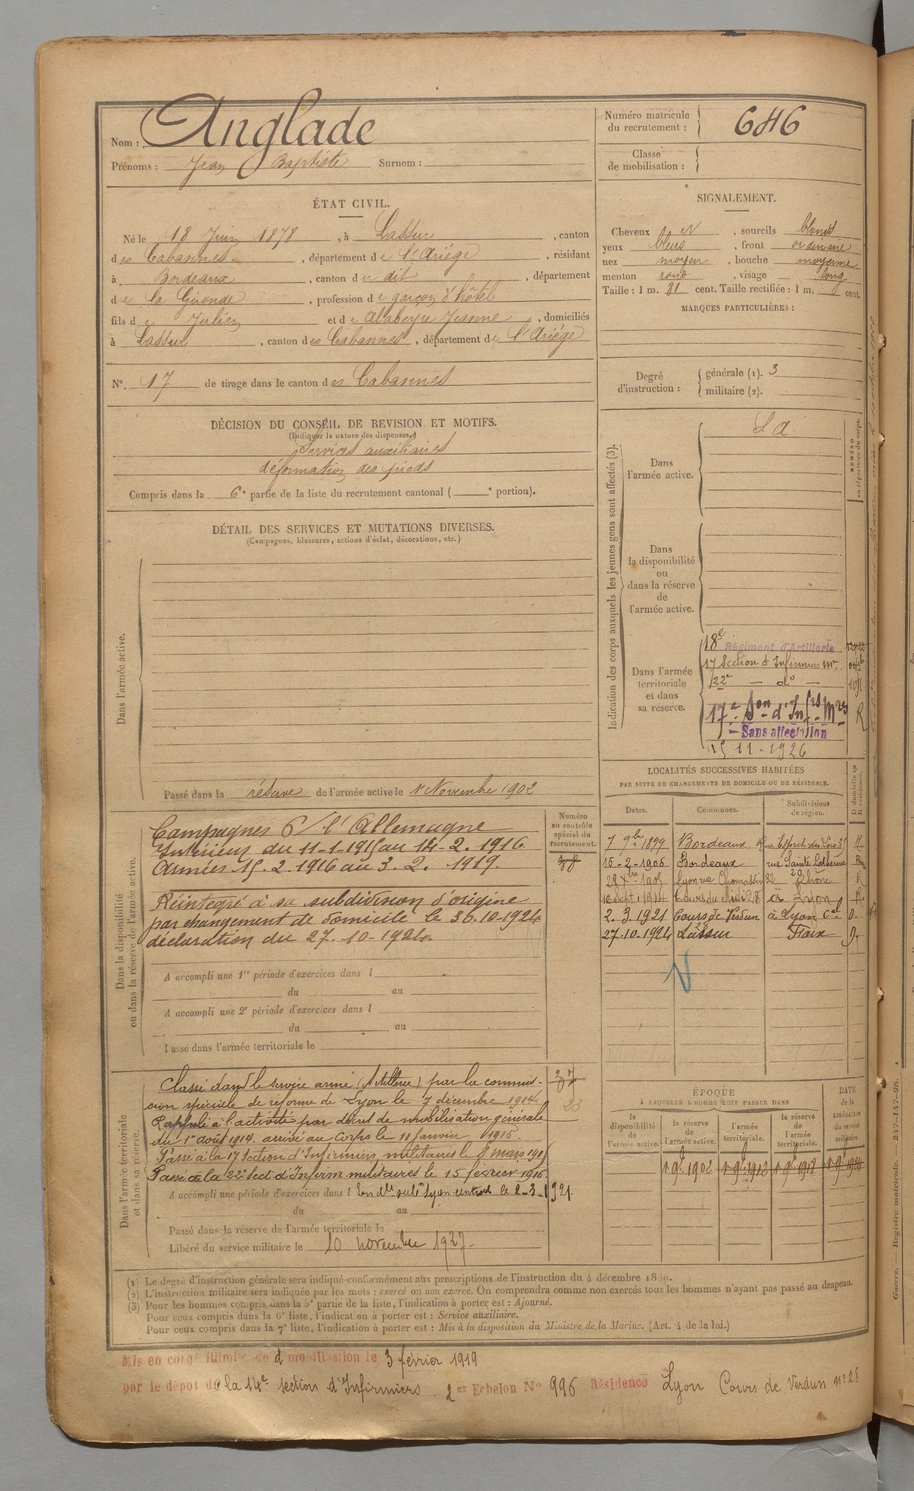 Nom : Anglade
Prénoms : Jean Baptiste Surnom :
Numéro matricule du recrutement : 646
Classe de mobilisation :
ÉTAT CIVIL.
Né le 18 Juin 1878, à Lassur, canton
des Cabannes, département de l'Ariége, résidant
à Bordeaux, canton du dit, département
de la Gironde, profession de garçon d'hôtel
fils de Julien et de Alabeyre Jeanne, domiciliés
à Lassur, canton des Cabannes, département de l'Ariége
N°. 17 de tirage dans le canton des Cabannes
SIGNALEMENT.
Cheveux N, sourcils blonds
yeux bleus, front ordinaire
nez moyen, bouche moyenne
menton rond, visage long
Taille : 1 m. 81 cent. Taille rectifiée : 1 m. cent.
MARQUES PARTICULIÈRES :
Degré d'instruction : générale (1). 3
militaire (2).
DÉCISION DU CONSEIL DE REVISION ET MOTIFS.
(Indiquer la nature des dispenses.)
Services auxiliaires
déformation des pieds
Compris dans la 6e partie de la liste du recrutement cantonal ( e portion).
DÉTAIL DES SERVICES ET MUTATIONS DIVERSES.
(Campagnes, blessures, actions d'éclat, décorations, etc.)
Dans l'armée active.
Passé dans la réserve de l'armée active le 1er Novembre 1902
Indication des corps auxquels les jeunes gens sont affectés (3).
Dans l'armée active.
S. A
Dans la disponibilité ou dans la réserve de l'armée active.
Dans l'armée territoriale et dans sa réserve.
18e Régiment d'Artillerie
17 Section d'Infirmiers Mres
22e — do —
17e Son d'Infrs Mres
Sans affectation
15 11 - 1926
LOCALITÉS SUCCESSIVES HABITÉES
PAR SUITE DE CHANGEMENTS DE DOMICILE OU DE RÉSIDENCE.
Dates. Communes. Subdivisions de région.
7 9bre 1899 Bordeaux
15-2-1905 Bordeaux rue Sainte Catherine
Rhône
2.3.1921 Cours de Verdun à Lyon
27.10.1924 Lassur Foix
Dans la disponibilité ou dans la réserve de l'armée active.
Numéro au contrôle spécial du recrutement.
Campagnes C/ l'Allemagne
Intérieur du 11-1-1915 au 14-2.1916
Armées 15.2.1916 au 3.2.1919.
Réintégré à sa subdivision d'origine
par changement de domicile le 26.10.1924
déclaration du 27.10-1924.
A accompli une 1re période d'exercices dans l
du au
A accompli une 2e période d'exercices dans l
du au
Passé dans l'armée territoriale le
Dans l'armée territoriale et dans sa réserve.
Classé dans le service armé (Artillerie) par la commis-
sion spéciale de réforme de Lyon le 7 décembre 1914.
Rappelé à l'activité par décret de mobilisation générale
du 1er août 1914. arrivé au Corps le 11 janvier 1915.
Passé à la 17 Section d'Infirmiers militaires le 8 mars 1915
Passé à la 22e Sect d'Infirm militaires le 15 février 1916
A accompli une période d'exercices dans l
du au
Passé dans la réserve de l'armée territoriale le
Libéré du service militaire le 10 novembre 1927.
ÉPOQUE
À LAQUELLE L'HOMME DOIT PASSER DANS
la disponibilité de l'armée active. la réserve de l'armée active. l'armée territoriale. la réserve de l'armée territoriale. DATE de la LIBÉRATION du service militaire.
(1) Le degré d'instruction générale sera indiqué conformément aux prescriptions de l'instruction du 4 décembre 1889.
(2) L'instruction militaire sera indiquée par les mots : exercé ou non exercé. On comprendra comme non exercés tous les hommes n'ayant pas passé au drapeau.
(3) Pour les hommes compris dans la 5e partie de la liste, l'indication à porter est : Ajourné.
Pour ceux compris dans la 6e liste, l'indication à porter est : Service auxiliaire.
Pour ceux compris dans la 7e liste, l'indication à porter est : Mis à la disposition du Ministre de la Marine. (Art. 4 de la loi.)
Mis en congé illimité de démobilisation le 3 février 1919
par le dépôt de la 14e section d'Infirmiers 2e Echelon N° 996 Résidence Lyon Cours de Verdun n° 28